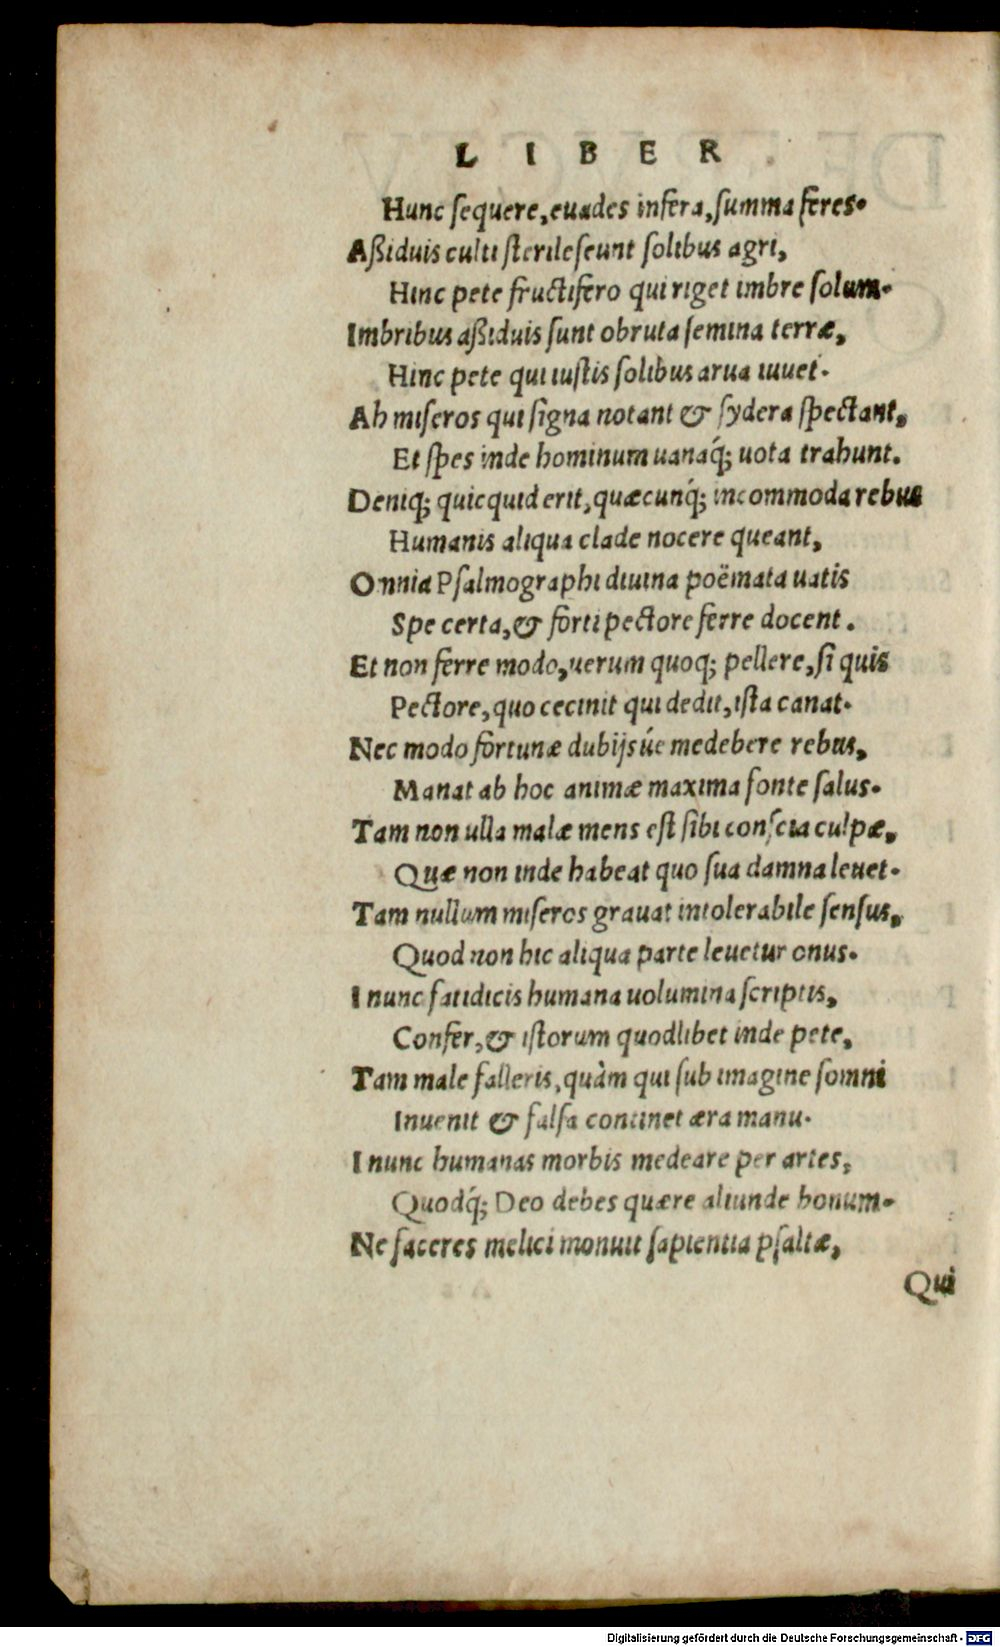 LIBER
Hunc ſequere, euades infera, ſumma feres.
Aßiduis culti ſterileſcunt ſolibus agri,
Hinc pete fructifero qui riget imbre ſolum.
Imbribus aßiduis ſunt obruta ſemina terræ,
Hinc pete qui iuſtis ſolibus arua iuuet.
Ah miſeros qui ſigna notant & ſydera ſpectant,
Et ſpes inde hominum uanaq́; uota trahunt.
Deniq; quicquid erit, quæcunq́; incommoda rebus
Humanis aliqua clade nocere queant,
Omnia Pſalmographi diuina poëmata uatis
Spe certa, & forti pectore ferre docent.
Et non ferre modo, uerum quoq; pellere, ſi quis
Pectore, quo cecinit qui dedit, iſta canat.
Nec modo fortunæ dubijsúe medebere rebus,
Manat ab hoc animæ maxima fonte ſalus.
Tam non ulla malæ mens eſt ſibi conſcia culpæ,
Quæ non inde habeat quo ſua damna leuet.
Tam nullum miſeros grauat intolerabile ſenſus,
Quod non hic aliqua parte leuetur onus.
I nunc fatidicis humana uolumina ſcriptis,
Confer, & iſtorum quodlibet inde pete,
Tam male falleris, quàm qui ſub imagine ſomni
Inuenit & falſa continet æra manu.
I nunc humanas morbis medeare per artes,
Quodq́; Deo debes quære aliunde bonum.
Ne faceres melici monuit ſapientia pſaltæ,
Qui
Digitalisierung gefördert durch die Deutsche Forschungsgemeinschaft - DFG